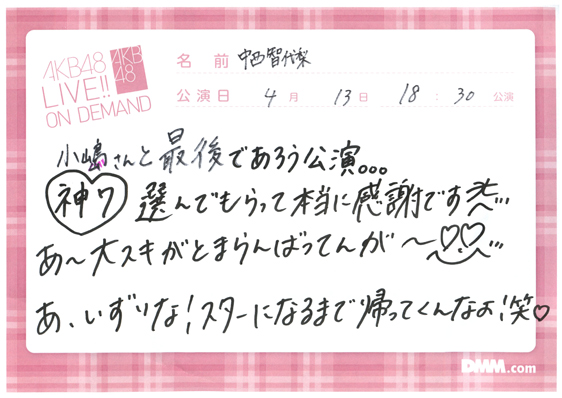 AKB48
LIVE!!
ON DEMAND
AKB
48
名前 中西智代梨
公演日 4月 13日 18:30 公演
小嶋さんと最後であろう公演...
神7 選んでもらって本当に感謝です
あ〜大スキがとまらんばってんが〜
あ、いずりな!スターになるまで帰ってくんなよ!笑♡
DMM.com